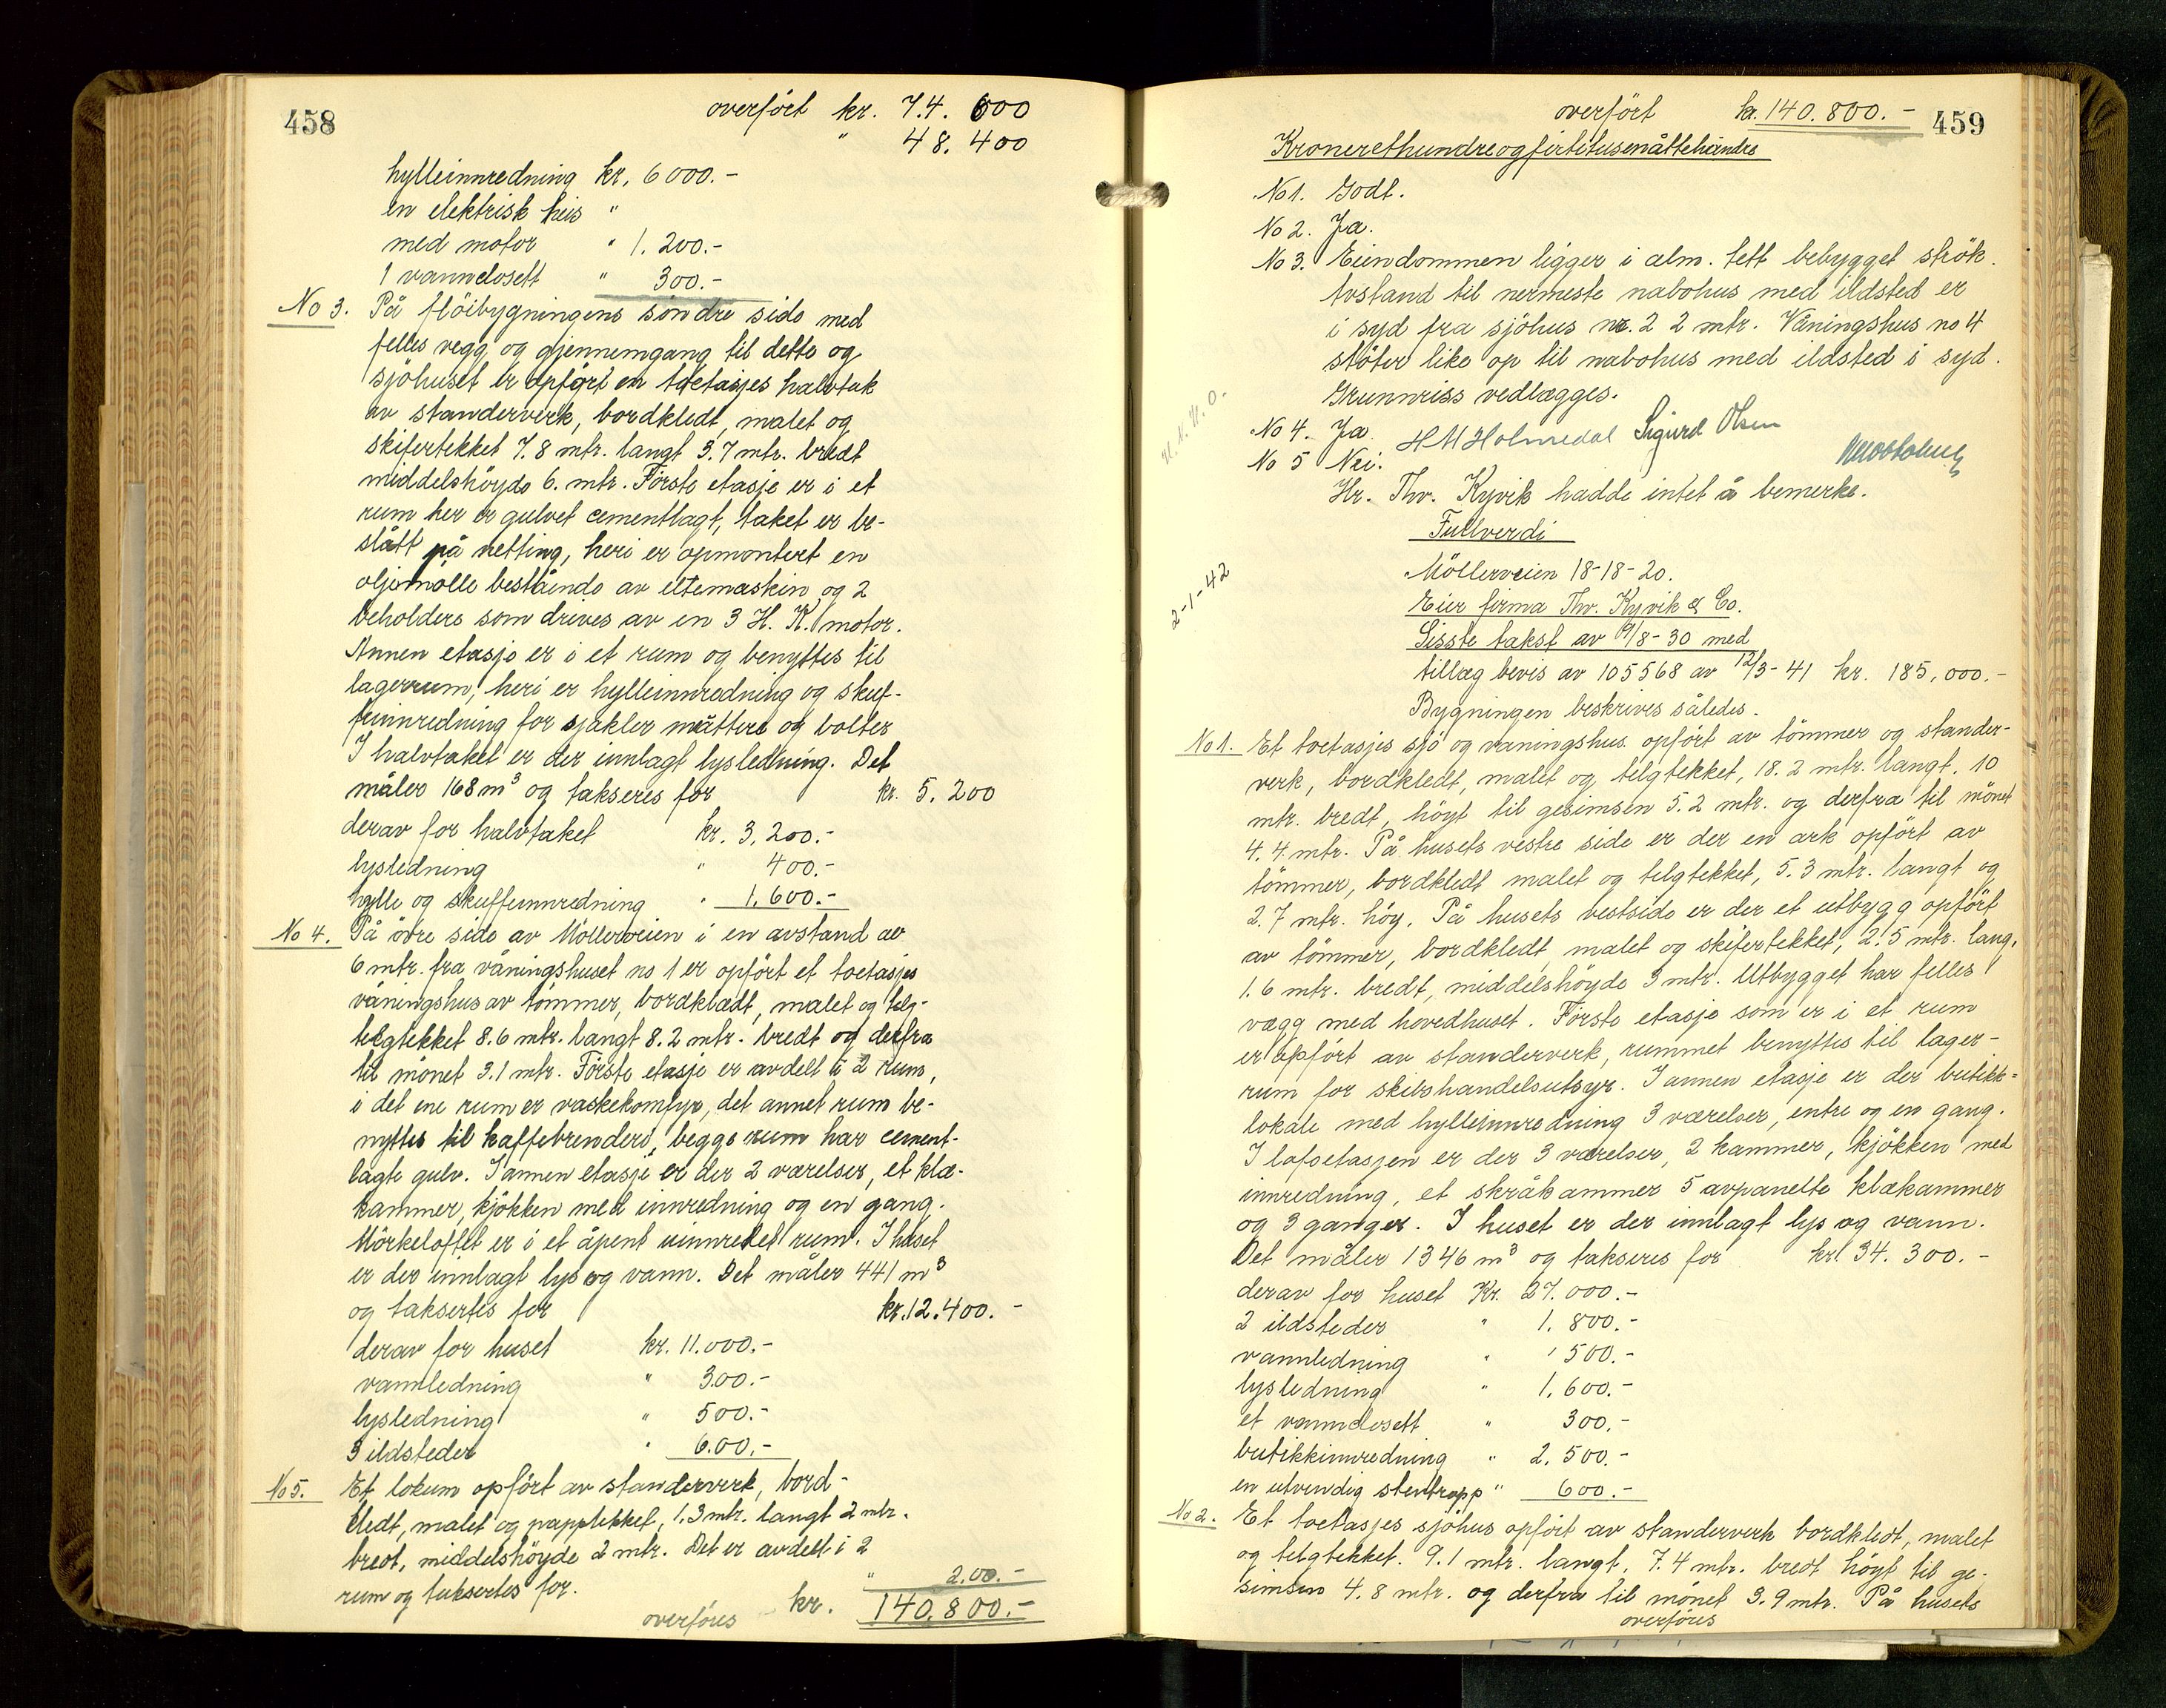 458
overført kr. 74.600
" 48.400
hylleinnredning kr. 6000.-
en elektrisk heis "
med motor " 1.200.-
1 vannclosett " 300.-
No 3. På flöibygningens söndre side med
felles vegg og gjennemgang til dette og
sjöhuset er opfört en toetasjes halvtak
av standerverk, bordkledt, malet og
skifertekket 7.8 mtr. langt 3.7 mtr. bredt
middelshöyde 6. mtr. Förste etasje er i et
rum her er gulvet cementlagt, taket er be-
slått på netting, heri er opmontert en
oljemölle bestående av eltemaskin og 2
beholdere som drives av en 3 H.K. motor.
Annen etasje er i et rum og benyttes til
lagerrum, heri er hylleinnredning og skuf-
feinnredning for sjakler muttere og bolter
I halvtaket er der innlagt lysledning. Det
måler 168 m³ og takseres for kr. 5.200
derav for halvtaket kr. 3.200.-
lysledning " 400.-
hylle og skuffeinnredning " 1.600.-
No 4. På övre side av Möllerveien i en avstand av
6 mtr. fra våningshuset no 1 er opfört et toetasjes
våningshus av tömmer, bordklædt, malet og telg-
telgtekket 8.6 mtr. langt 8.2 mtr. bredt og derfra
til mönet 3.1 mtr. Förste etasje er avdelt i 2 rum,
i det ene rum er vaskekomfyr, det annet rum be-
nyttes til kaffebrenderi, begge rum har cement-
lagte gulv. I annen etasje er der 2 værelser, et klæ-
kammer, kjökken med innredning og en gang.
Mörkeloftet er i et åpent uinnredet rum. I huset
er der innlagt lys og vann. Det måler 441 m³
og taksertes for kr. 12.400.-
derav for huset kr. 11.000.-
vannledning " 300.-
lysledning " 500.-
3 ildsteder " 600.-
No 5. Et lokum opfört av standerverk, bord-
kledt, malet og papptekket, 1.3 mtr. langt 2 mtr.
bredt, middelshöyde 2 mtr. Det er avdelt i 2
rum og taksertes for. " 200.-
overföres kr. 140.800.-
overfört kr. 140.800.- 459
Kronerethundreogfirtitusenåttehundre
No 1. Godt.
No 2. Ja.
No 3. Eiendommen ligger i alm. tett bebygget strök.
Avstand til nermeste nabohus med ildsted er
i syd fra sjöhus nr. 2 2 mtr. Våningshus no 4
stöter like op til nabohus med ildsted i syd.
Grunnriss vedlægges.
No 4. Ja. H M Holmedal Sigurd Olsen
No 5 Nei.
Hr. Thv. Kyvik hadde intet å bemerke.
Fullverdi
2-1-42
Möllerveien 18-18-20.
Eier firma Thv. Kyvik & Co.
Sisste takst av 19/8-30 med
tillæg bevis av 105568 av 12/3-41 kr. 185,000.-
Bygningen beskrives således.
No 1. Et toetasjes sjö og våningshus opfört av tömmer og stander-
verk, bordkledt, malet og telgtekket, 18.2 mtr. langt. 10
mtr. bredt, höyt til gesimsen 5.2 mtr. og derfra til mönet
4.4 mtr. På husets vestre side er der en ark opfört av
tömmer, bordkledt malet og telgtekket, 5.3 mtr. langt og
2.7 mtr. höy. På husets vestside er der et utbygg opfört
av tömmer, bordkledt, malet og skifertekket, 2.5 mtr. lang,
1.6 mtr. bredt, middelshöyde 3 mtr. Utbygget har felles
vægg med hovedhuset. Förste etasje som er i et rum
er opfört av standerverk, rummet benyttes til lager-
rum for skibshandelsutsyr. I annen etasje er der butikk-
lokale med hylleinnredning 3 værelser, entre og en gang.
I loftsetasjen er der 3 værelser, 2 kammer, kjökken med
innredning, et skråkammer 5 avpanelte klækammer
og 3 ganger. I huset er der innlagt lys og vann.
Det måler 1346 m³ og takseres for kr. 34.300.-
derav for huset Kr. 27.000.-
2 ildsteder " 1.800.-
vannledning " 500.-
lysledning " 1.600.-
et vannclosett " 300.-
butikkinnredning " 2.500.-
en utvendig stentrapp " 600.-
No 2. Et toetasjes sjöhus opfört av standerverk bordkledt, malet
og telgtekket. 9.1 mtr. langt. 7.4 mtr. bredt höyt til ge-
simsen 4.8 mtr. og derfra til mönet 3.9 mtr. På husets
overföres